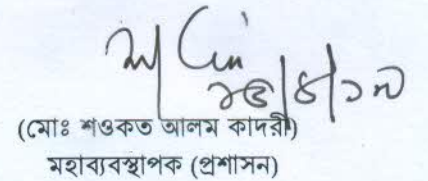 (মোঃ শওকত আলম কাদরী)
মহাব্যবস্থাপক (প্রশাসন)